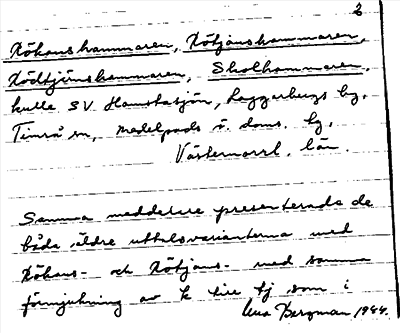 2
Kökanshammaren, Kötjanshammaren,
Ködtjärnshammaren, Skolhammaren,
kulle SV Hamstasjön, Laggarbergs by,
Timrå sn, Medelpads v. doms. by,
Västernorrl. län.
Samma meddelare presenterade de
båda äldre uttalsvarianterna med
Kökans- och Kötjans- med samma
förmjukning av k till tj som i
Bergman 1984.